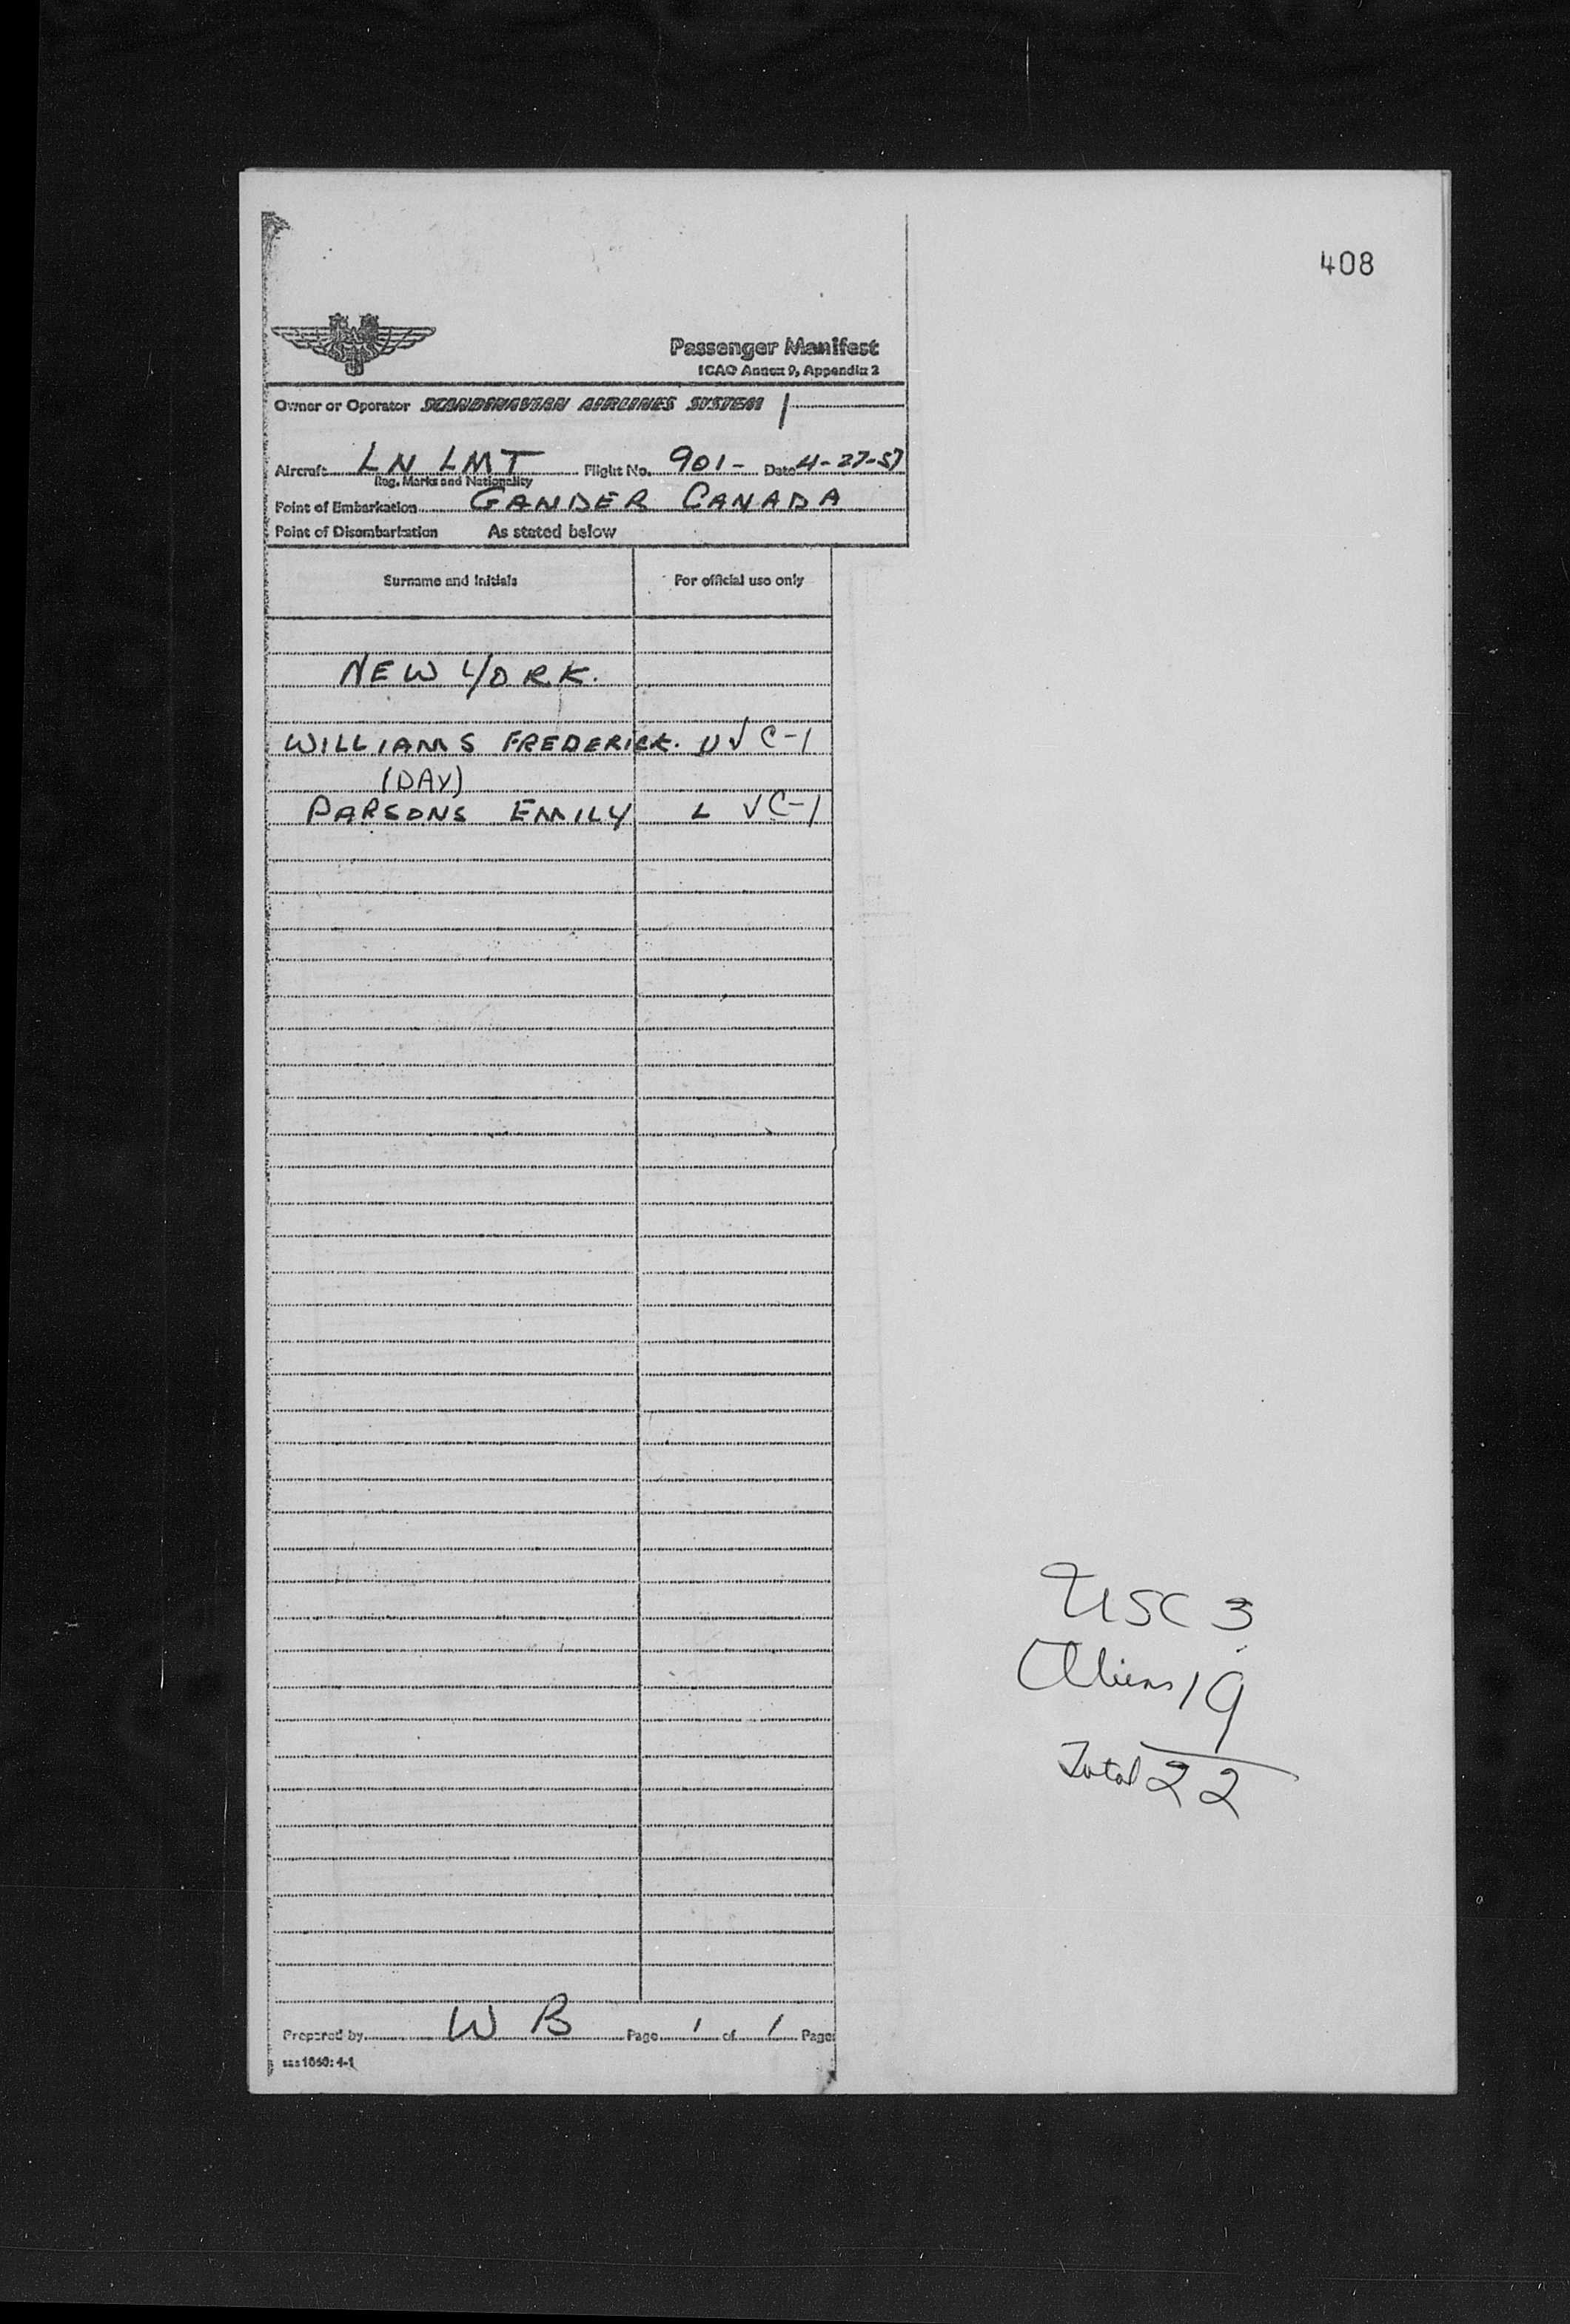 408
Passenger Manifest
ICAO Annex 9, Appendix 2
Owner or Operator SCANDINAVIAN AIRLINES SYSTEM
Aircraft LN LMT Flight No. 901- Date 4-27-57
Reg. Marks and Nationality
Point of Embarkation GANDER CANADA
Point of Disembarkation As stated below
Surname and Initials For official use only
NEW YORK.
WILLIAMS FREDERICK. U √ C-1
(DAY)
PARSONS EMILY L √ C-1
USC 3
Aliens 19
Total 22
Prepared by W B Page 1 of 1 Page
sas 1060: 4-1